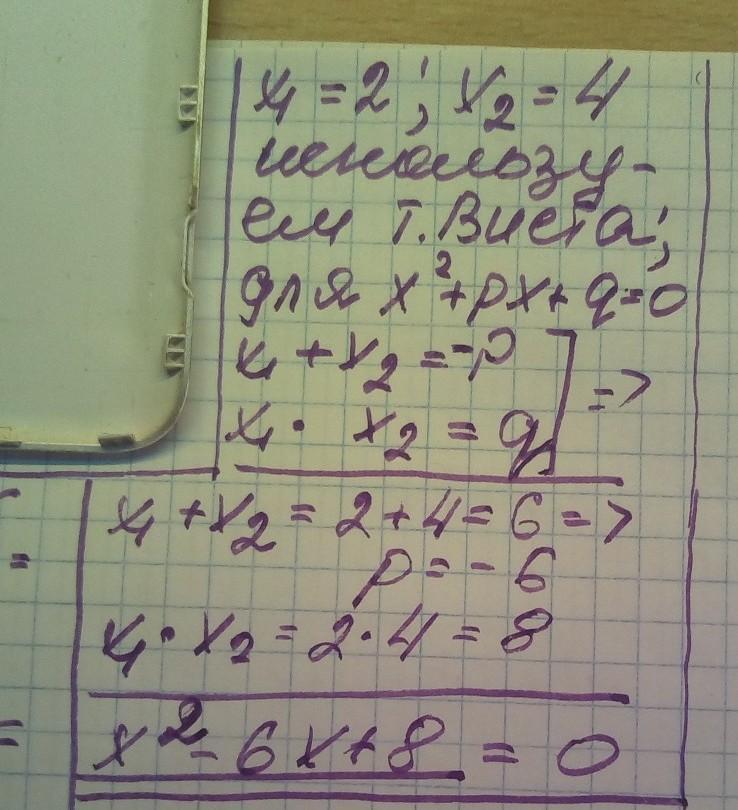 x₁ = 2; x₂ = 4
использу-
ем т. Виета;
для x² + px + q = 0
x₁ + x₂ = -p ] =>
x₁ · x₂ = q
x₁ + x₂ = 2 + 4 = 6 =>
p = -6
=
x₁ · x₂ = 2 · 4 = 8
x² - 6x + 8 = 0
=